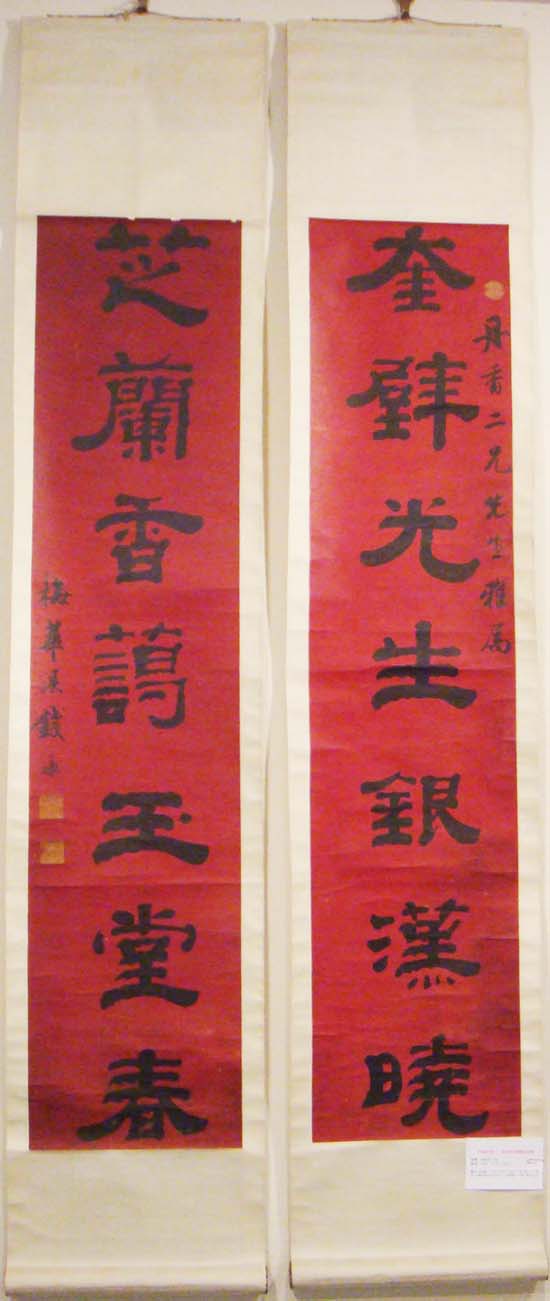 丹香二兄先生雅属
奎壁光生銀漢曉
芝蘭香藹玉堂春
梅華溪錢泳